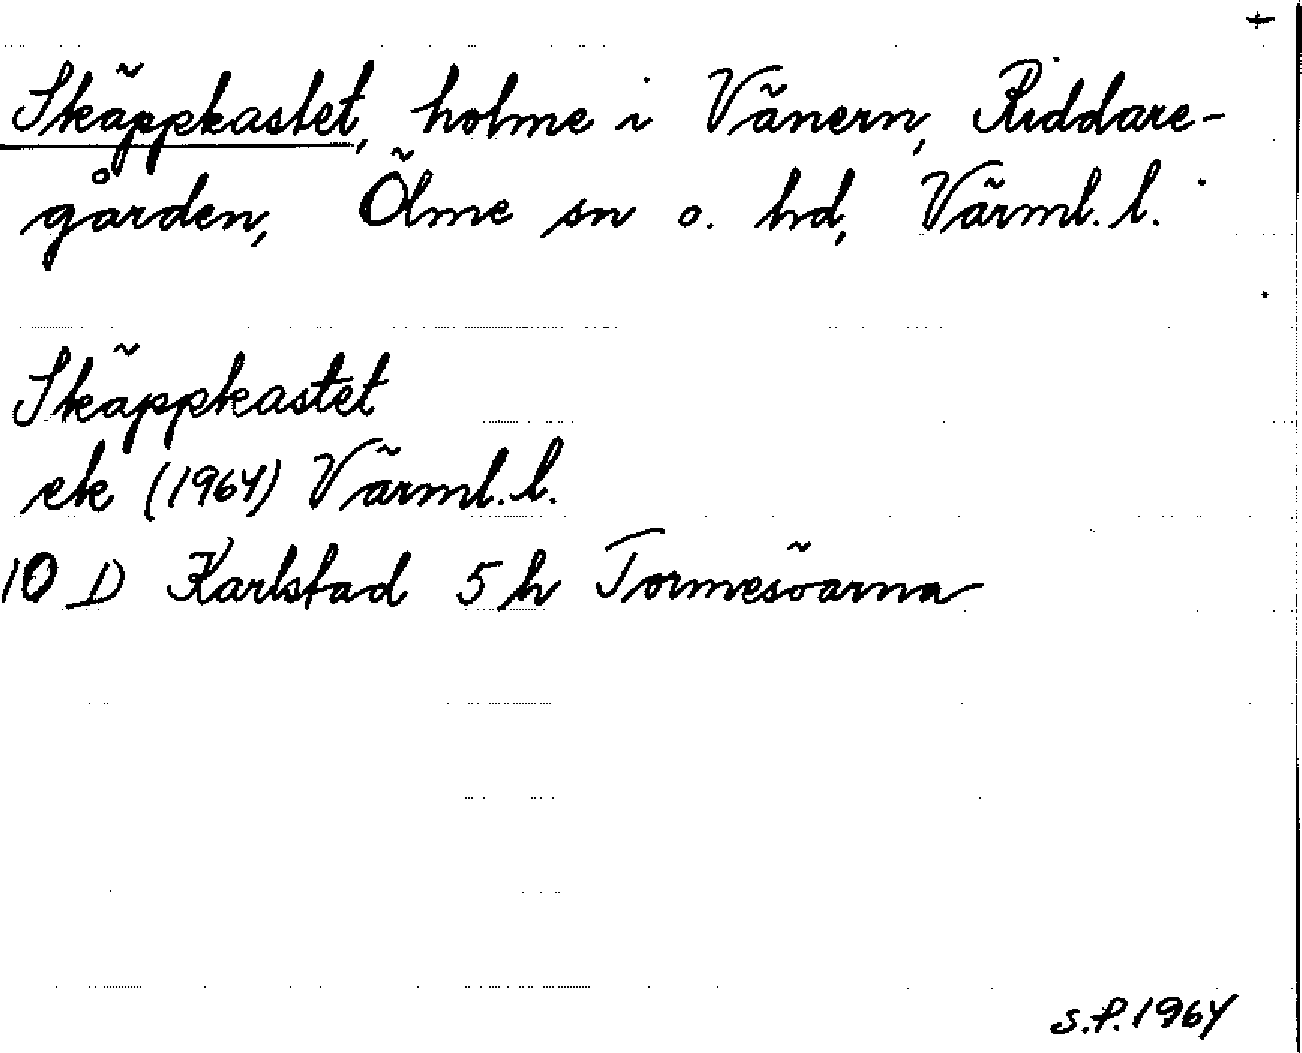 Skäppkastet, holme i Vänern, Riddare-
gården, Ölme sn o. hd, Värml. l.
Skäppkastet
ek (1964) Värml. l.
10 D Karlstad 5 h Tormesöarna
S.P. 1964